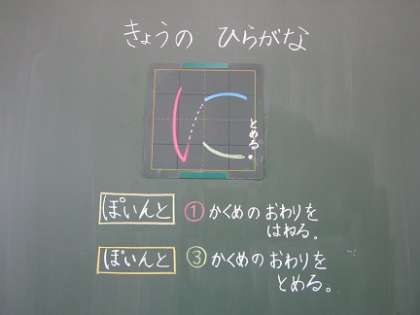 きょうの ひらがな
に
とめる。
ぽいんと ①かくめの おわりを
はねる。
ぽいんと ③かくめの おわりを
とめる。